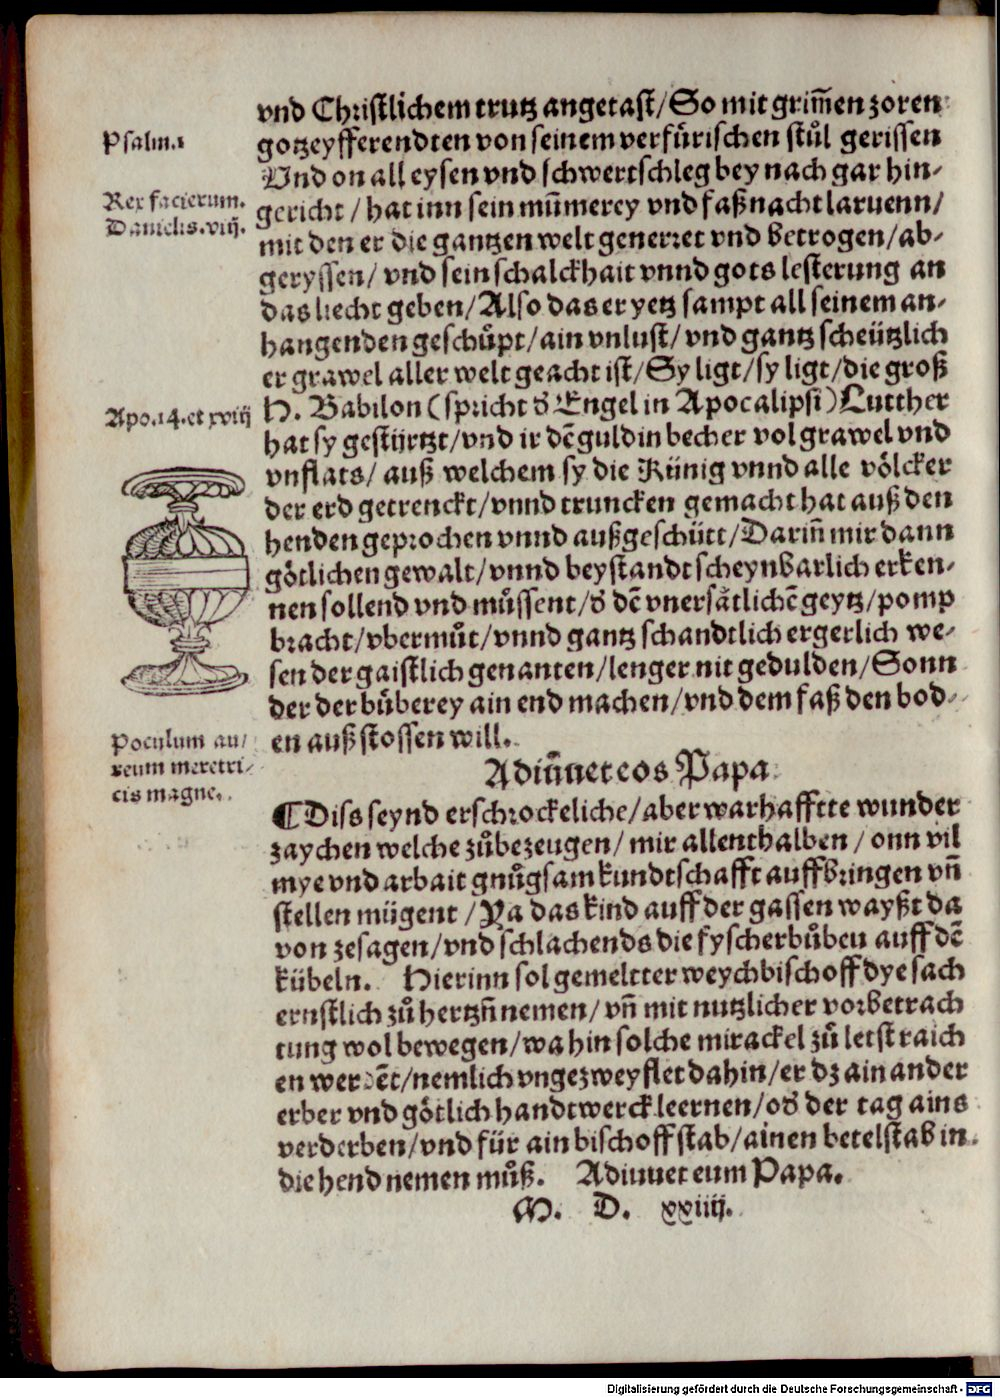 vnd Christlichem trutz angetast/ So mit grim̃en zoren
gotzeyfferendten von seinem verfürischen stůl gerissen
Vnd on all eysen vnd schwertschleg bey nach gar hin-
gericht / hat inn sein mum̃erey vnd faßnacht laruenn/
mit den er die gantzen welt generret vnd betrogen/ ab-
geryssen/ vnd sein schalckhait vnnd gots lesterung an
das liecht geben/ Also das er yetz sampt all seinem an-
hangenden geschüpt/ ain vnlust/ vnd gantz scheützlich
er grawel aller welt geacht ist/ Sy ligt/ sy ligt/ die groß
H. Babilon (spricht d̕ Engel in Apocalipsi) Lutther
hat sy gestürtzt/ vnd ir dē guldin becher vol grawel vnd
vnflats/ auß welchem sy die Künig vnnd alle völcker
der erd getrenckt/ vnnd truncken gemacht hat auß den
henden geprochen vnnd außgeschütt/ Dariñ mir dann
götlichen gewalt/ vnnd beystandt scheynbarlich erken-
nen sollend vnd müssent/ d̕ dē vnersätlichē geytz/ pomp
bracht/ vbermůt/ vnnd gantz schandtlich ergerlich we-
sen der gaistlich genanten/ lenger nit gedulden/ Sonn
der der büberey ain end machen/ vnd dem faß den bod-
en auß stossen will.
Psalm.1
Rex facierum.
Danielis.viij.
Apo.14.et xviij
Poculum au/
reum meretri-
cis magne.
Adiuũet eos Papa.
¶ Diss seynd erschrockeliche/ aber warhafftte wunder
zaychen welche zůbezeugen/ mir allenthalben / onn vil
mye vnd arbait gnůgsam kundtschafft auffbringen vñ
stellen mügent / Ya das kind auff der gassen wayßt da
von zesagen/ vnd schlachends die fyscherbůben auff dē
kübeln. Hierinn sol gemeltter weychbischoff dye sach
ernstlich zů hertzñ nemen/ vñ mit nutzlicher vorbetrach
tung wol bewegen/ wa hin solche mirackel zů letst raich
en werdēt/ nemlich vngezweyflet dahin/ er dz ain ander
erber vnd götlich handtwerck leernen/ od̕ der tag ains
verderben/ vnd für ain bischoff stab/ ainen betelstab in
die hend nemen můß. Adiuuet eum Papa.
M. D. xxiiij.
Digitalisierung gefördert durch die Deutsche Forschungsgemeinschaft - DFG